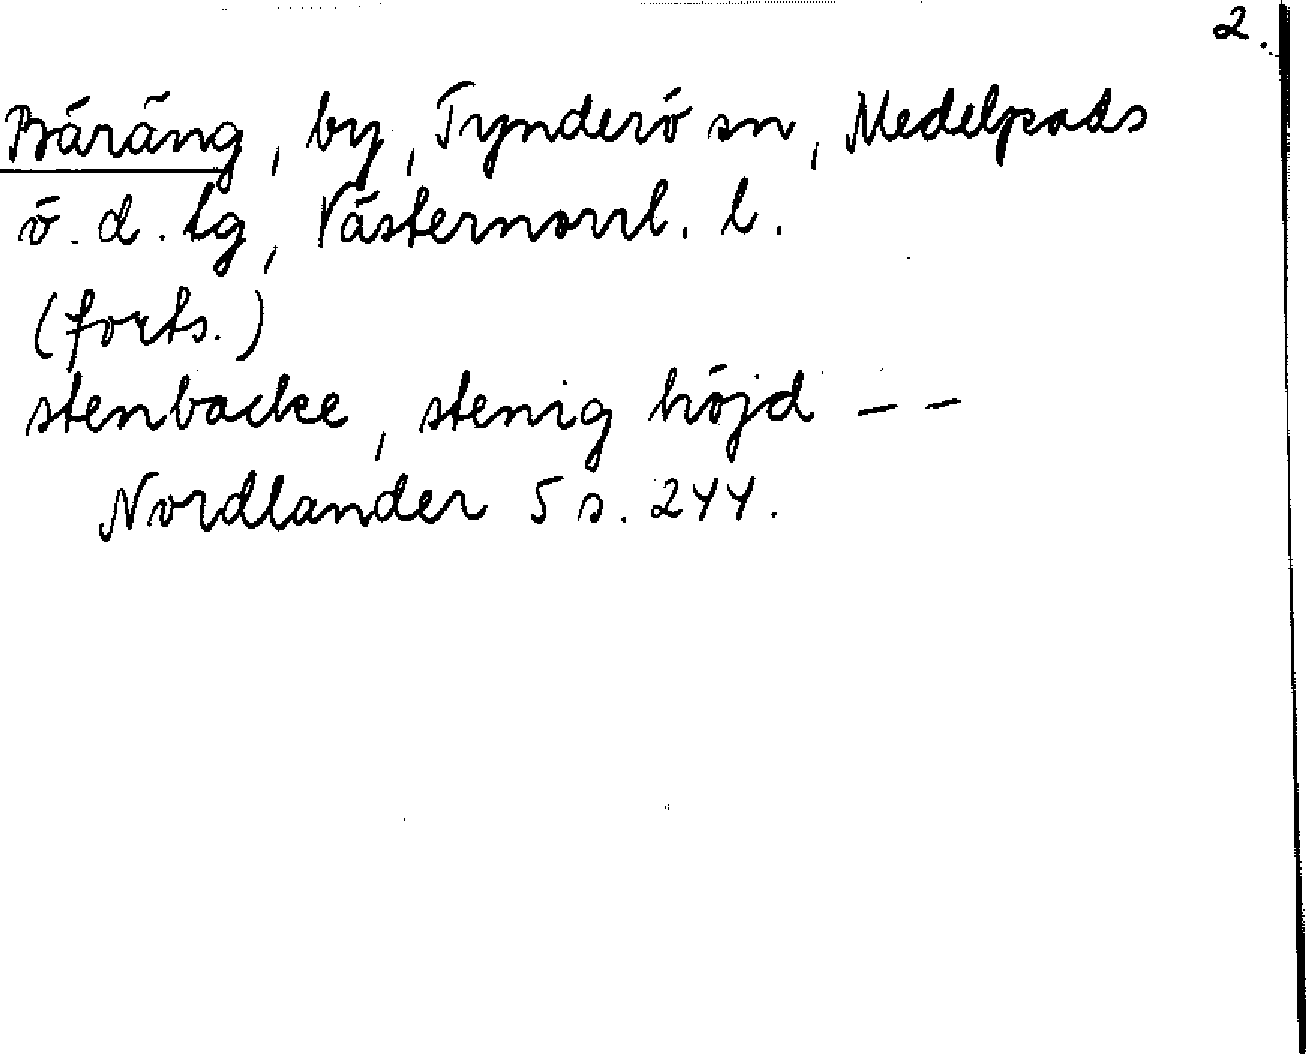 2.
Bäräng, by, Tynderö sn, Medelpads
ö. d. tg, Västernorrl. l.
(forts.)
stenbacke, stenig höjd – –
Nordlander 5 s. 244.